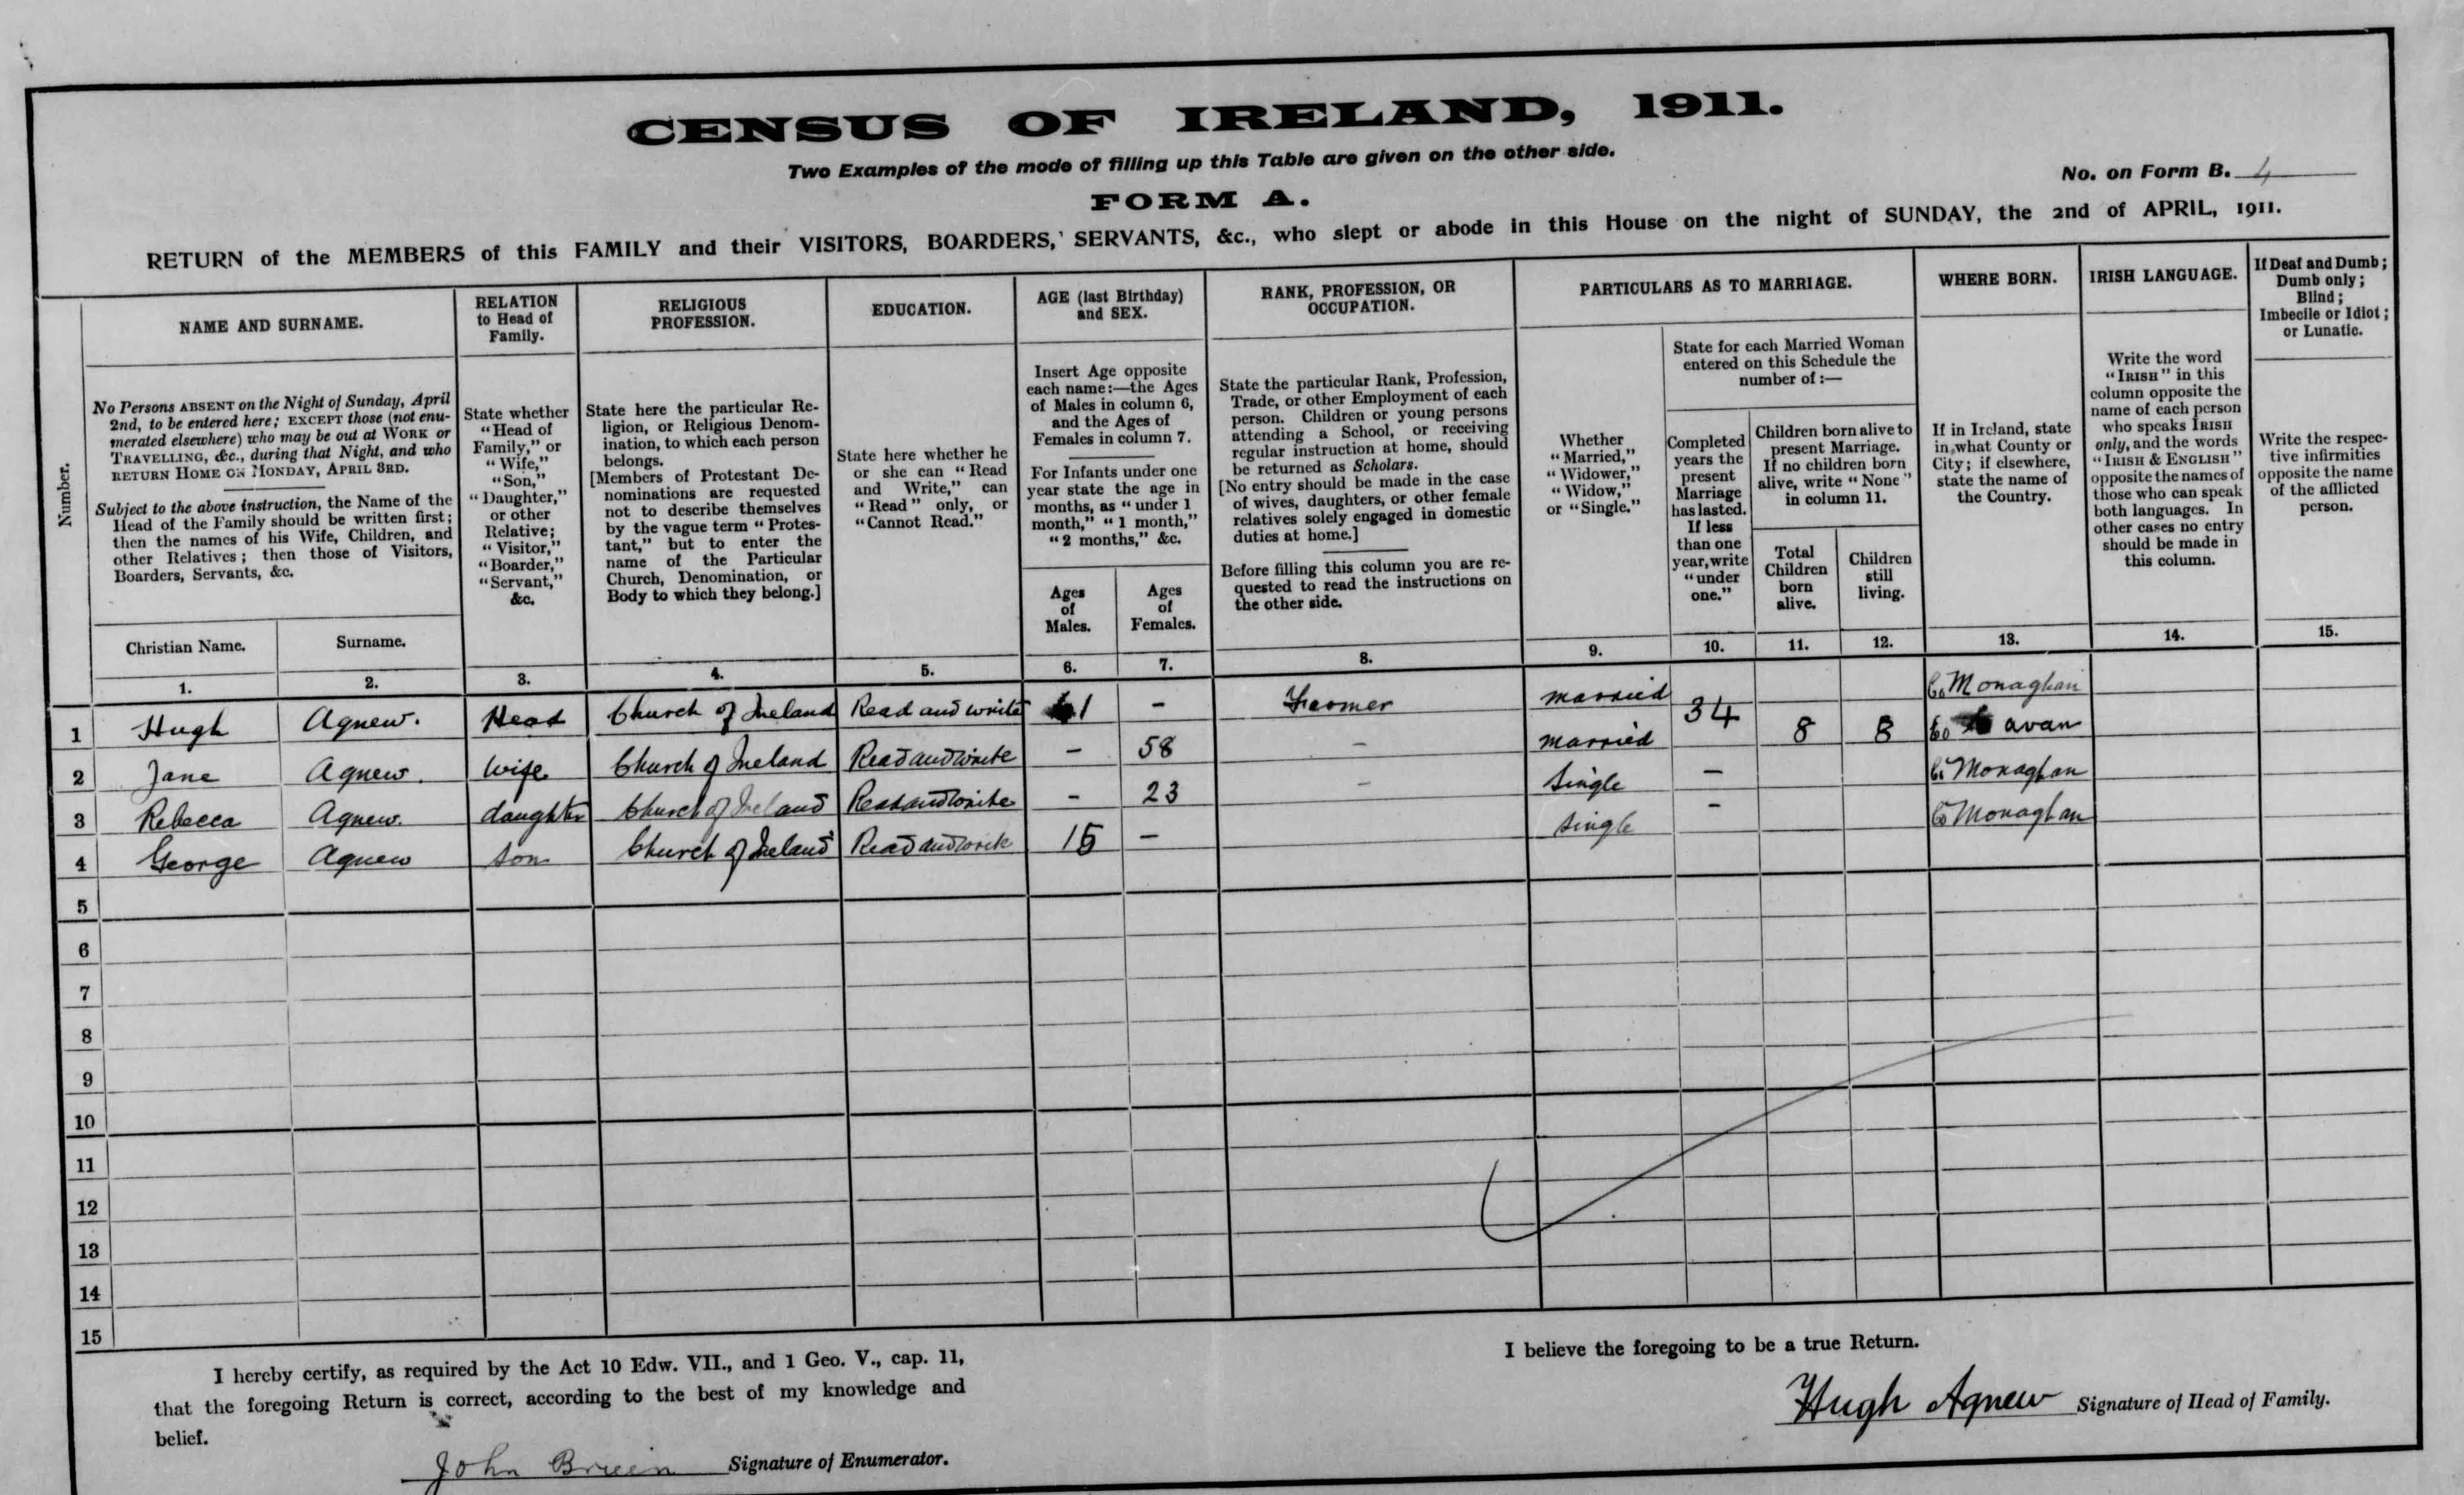 CENSUS OF IRELAND, 1911.
Two Examples of the mode of filling up this Table are given on the other side.
No. on Form B. 4
FORM A.
RETURN of the MEMBERS of this FAMILY and their VISITORS, BOARDERS, SERVANTS, &c., who slept or abode in this House on the night of SUNDAY, the 2nd of APRIL, 1911.
Number.
NAME AND SURNAME.
No Persons ABSENT on the Night of Sunday, April
2nd, to be entered here; EXCEPT those (not enu-
merated elsewhere) who may be out at WORK or
TRAVELLING, &c., during that Night, and who
RETURN HOME ON MONDAY, APRIL 3RD.
Subject to the above instruction, the Name of the
Head of the Family should be written first;
then the names of his Wife, Children, and
other Relatives; then those of Visitors,
Boarders, Servants, &c.
Christian Name.
Surname.
1.
2.
RELATION
to Head of
Family.
State whether
"Head of
Family," or
"Wife,"
"Son,"
"Daughter,"
or other
Relative;
"Visitor,"
"Boarder,"
"Servant,"
&c.
3.
RELIGIOUS
PROFESSION.
State here the particular Re-
ligion, or Religious Denom-
ination, to which each person
belongs.
[Members of Protestant De-
nominations are requested
not to describe themselves
by the vague term "Protes-
tant," but to enter the
name of the Particular
Church, Denomination, or
Body to which they belong.]
4.
EDUCATION.
State here whether he
or she can "Read
and Write," can
"Read" only, or
"Cannot Read."
5.
AGE (last Birthday)
and SEX.
Insert Age opposite
each name:—the Ages
of Males in column 6,
and the Ages of
Females in column 7.
For Infants under one
year state the age in
months, as "under 1
month," "1 month,"
"2 months," &c.
Ages
of
Males.
Ages
of
Females.
6.
7.
RANK, PROFESSION, OR
OCCUPATION.
State the particular Rank, Profession,
Trade, or other Employment of each
person. Children or young persons
attending a School, or receiving
regular instruction at home, should
be returned as Scholars.
[No entry should be made in the case
of wives, daughters, or other female
relatives solely engaged in domestic
duties at home.]
Before filling this column you are re-
quested to read the instructions on
the other side.
8.
PARTICULARS AS TO MARRIAGE.
Whether
"Married,"
"Widower,"
"Widow,"
or "Single."
9.
State for each Married Woman
entered on this Schedule the
number of:—
Completed
years the
present
Marriage
has lasted.
If less
than one
year, write
"under
one."
10.
Children born alive to
present Marriage.
If no children born
alive, write "None"
in column 11.
Total
Children
born
alive.
Children
still
living.
11.
12.
WHERE BORN.
If in Ireland, state
in what County or
City; if elsewhere,
state the name of
the Country.
13.
IRISH LANGUAGE.
Write the word
"IRISH" in this
column opposite the
name of each person
who speaks IRISH
only, and the words
"IRISH & ENGLISH"
opposite the names of
those who can speak
both languages. In
other cases no entry
should be made in
this column.
14.
If Deaf and Dumb;
Dumb only;
Blind;
Imbecile or Idiot;
or Lunatic.
Write the respec-
tive infirmities
opposite the name
of the afflicted
person.
15.
1 Hugh Agnew. Head Church of Ireland Read and write 61 – Farmer married Co Monaghan
2 Jane Agnew. wife. Church of Ireland Read and write – 58 – married 34 8 8 Co avan
3 Rebecca Agnew. daughter Church of Ireland Read and write – 23 – single – Co Monaghan
4 George Agnew son Church of Ireland Read and write 15 – single – Co Monaghan
5
6
7
8
9
10
11
12
13
14
15
I hereby certify, as required by the Act 10 Edw. VII., and 1 Geo. V., cap. 11,
that the foregoing Return is correct, according to the best of my knowledge and
belief.
John Signature of Enumerator.
I believe the foregoing to be a true Return.
Hugh Agnew Signature of Head of Family.